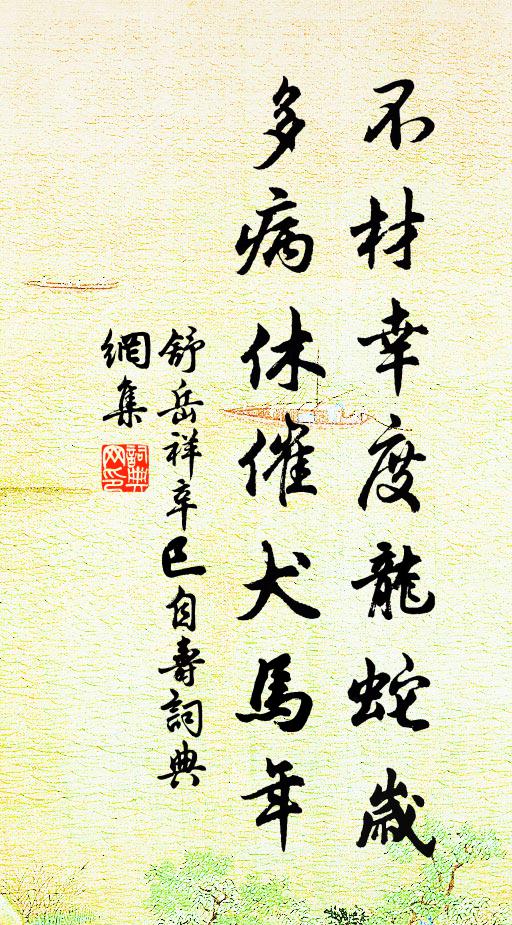 不材幸度龍蛇歲
多病休催犬馬年
舒岳祥辛巳自壽詞典
網集
詞典
网印